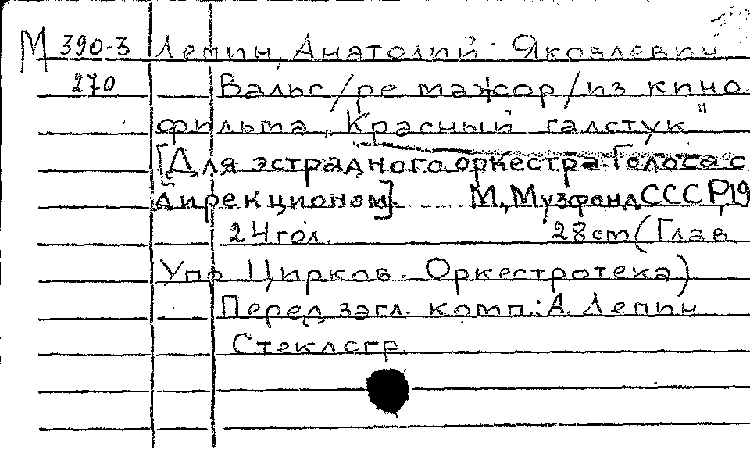 М 390-3 Лепин, Анатолий Яковлевич
270 Вальс /ре мажор/ из кино
фильма „Красный галстук"
[Для эстрадного оркестра. Голоса с
дирекционом]. М., Музфонд СССР, 19
24 гол. 28 cm (Глав.
Упр. Цирков. Оркестротека)
Перед загл. комп.: А. Лепин
Стеклогр.